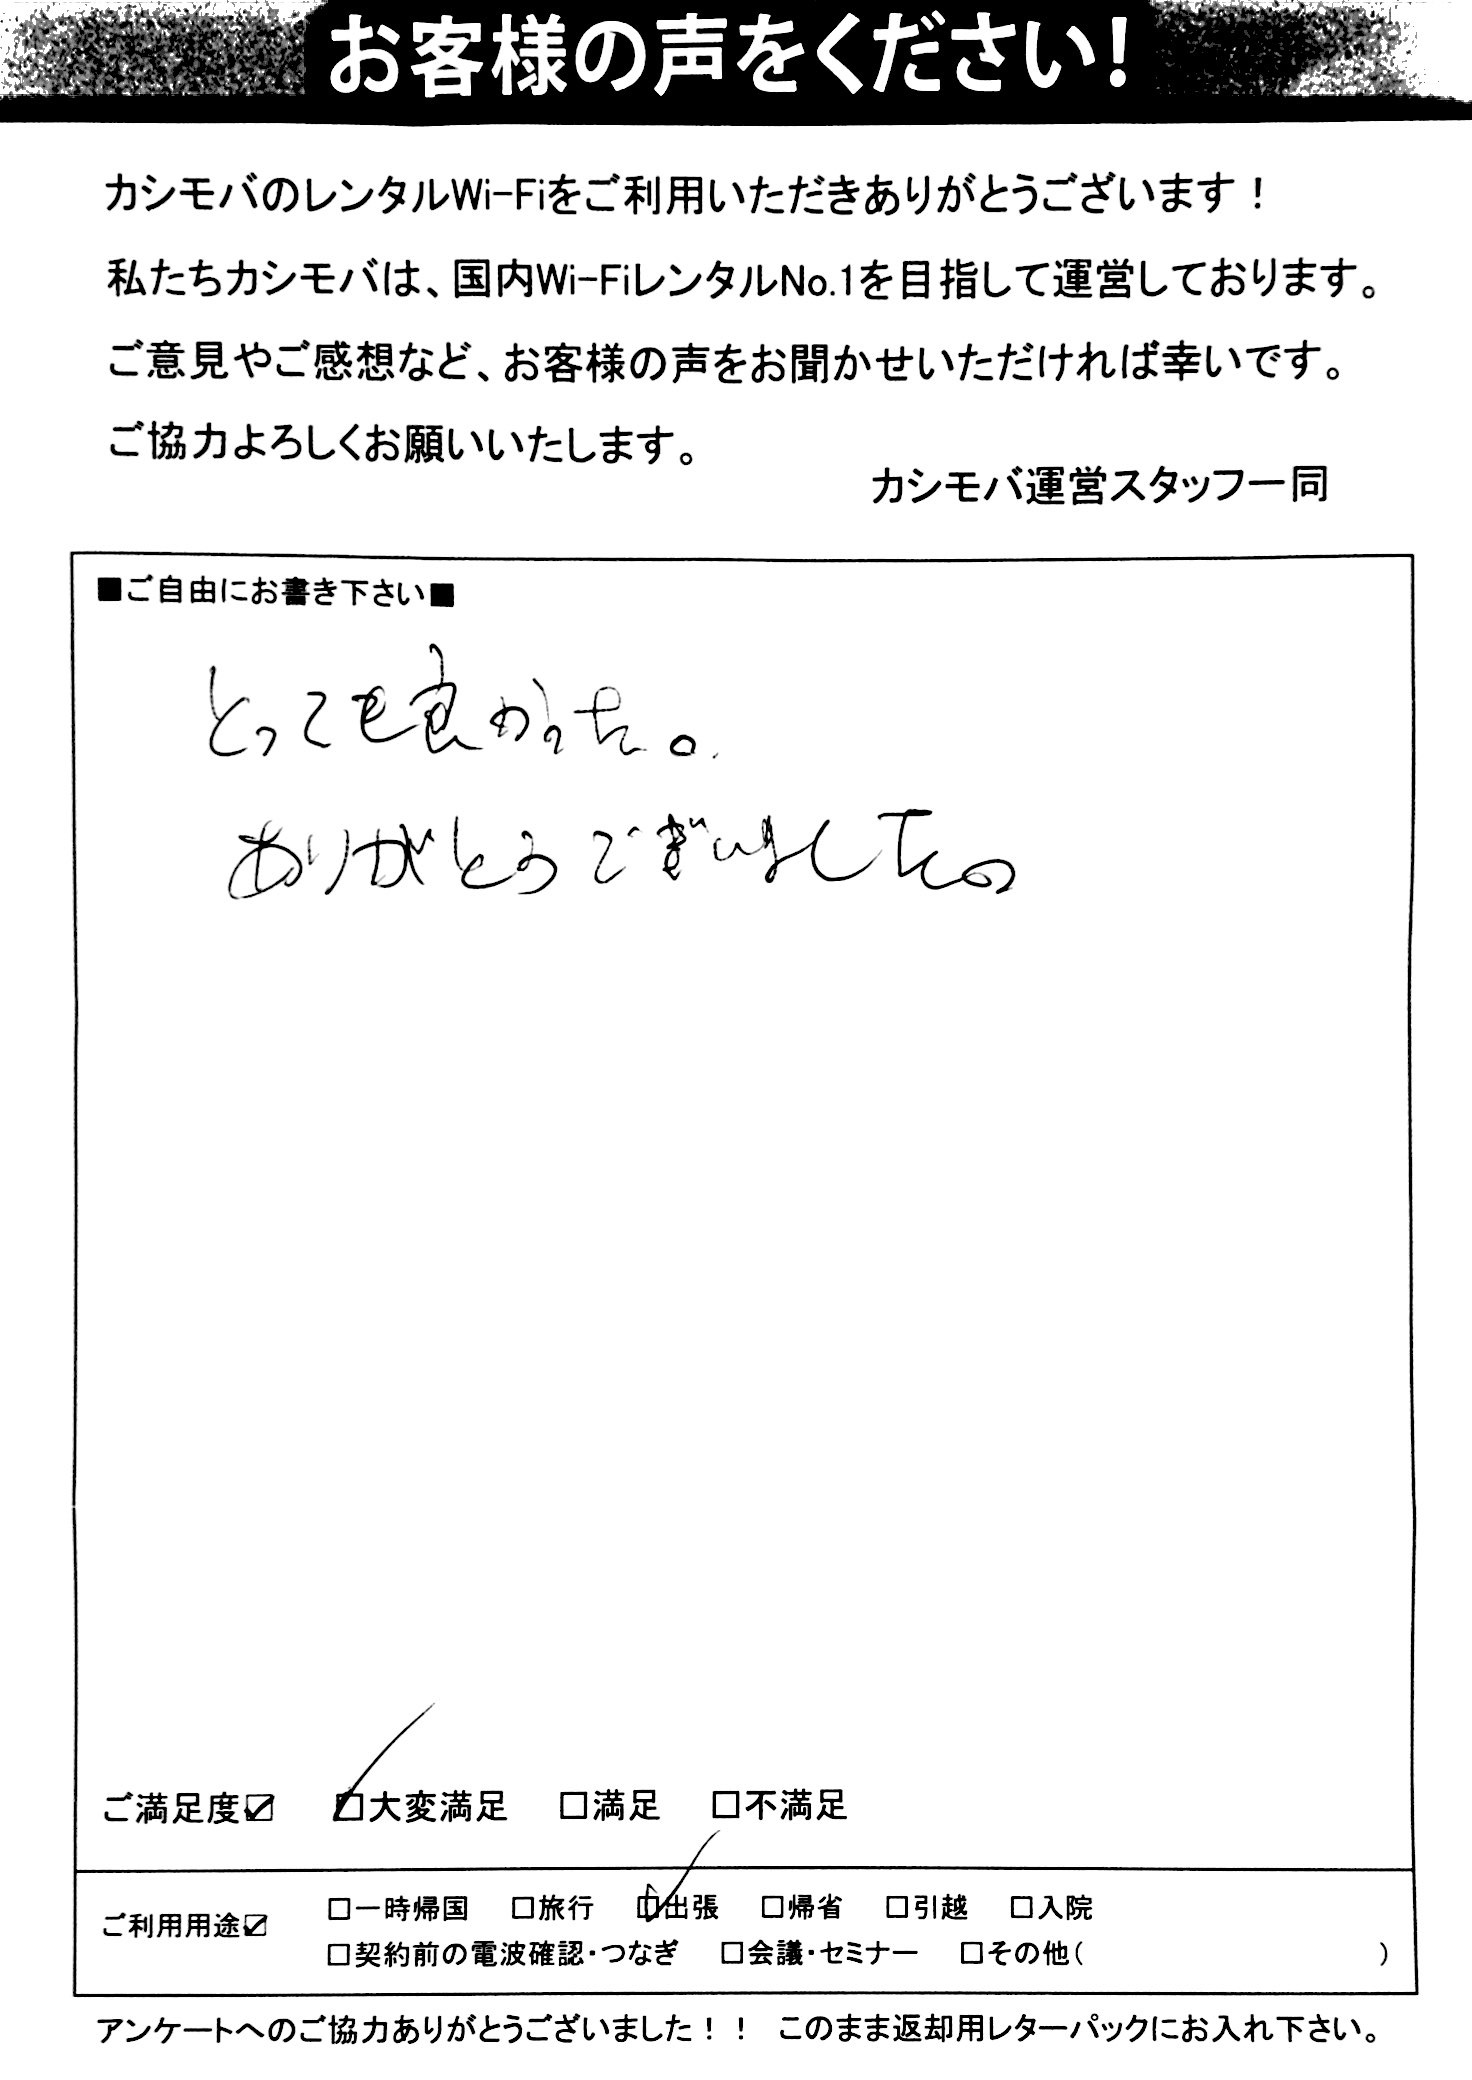 お客様の声をください!
カシモバのレンタルWi-Fiをご利用いただきありがとうございます!
私たちカシモバは、国内Wi-FiレンタルNo.1を目指して運営しております。
ご意見やご感想など、お客様の声をお聞かせいただければ幸いです。
ご協力よろしくお願いいたします。
カシモバ運営スタッフ一同
■ご自由にお書き下さい■
とっても良かった。
ありがとうございました。
ご満足度☑ ☑大変満足 □満足 □不満足
ご利用用途☑ □一時帰国 □旅行 ☑出張 □帰省 □引越 □入院
□契約前の電波確認・つなぎ □会議・セミナー □その他( )
アンケートへのご協力ありがとうございました!! このまま返却用レターパックにお入れ下さい。